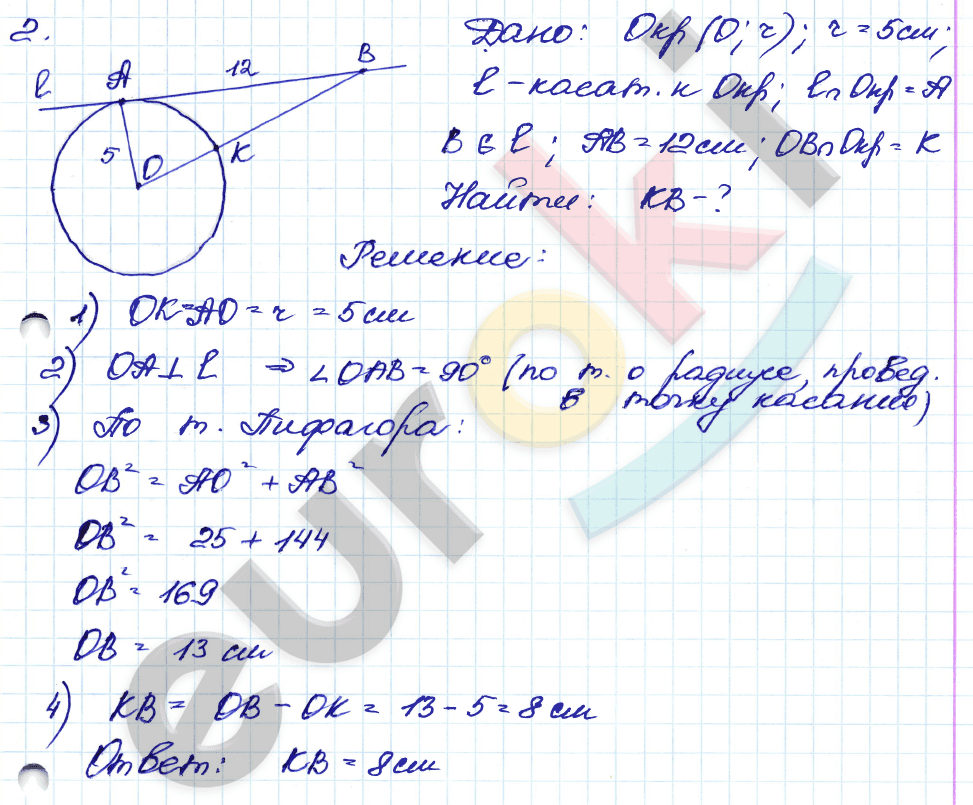 2.
Дано: Окр (O; r); r = 5см;
l - касат. к Окр; l∩Окр = A
B ∈ l; AB = 12см; OB∩Окр = K
Найти: KB - ?
l A 12 B
5 O K
Решение:
1) OK=AO = r = 5см
2) OA⊥l ⇒ ∠OAB = 90° (по т. о радиусе, провед.
в точку касания)
3) По т. Пифагора:
OB² = AO² + AB²
OB² = 25 + 144
OB² = 169
OB = 13 см
4) KB = OB - OK = 13 - 5 = 8 см
Ответ: KB = 8см
euroki